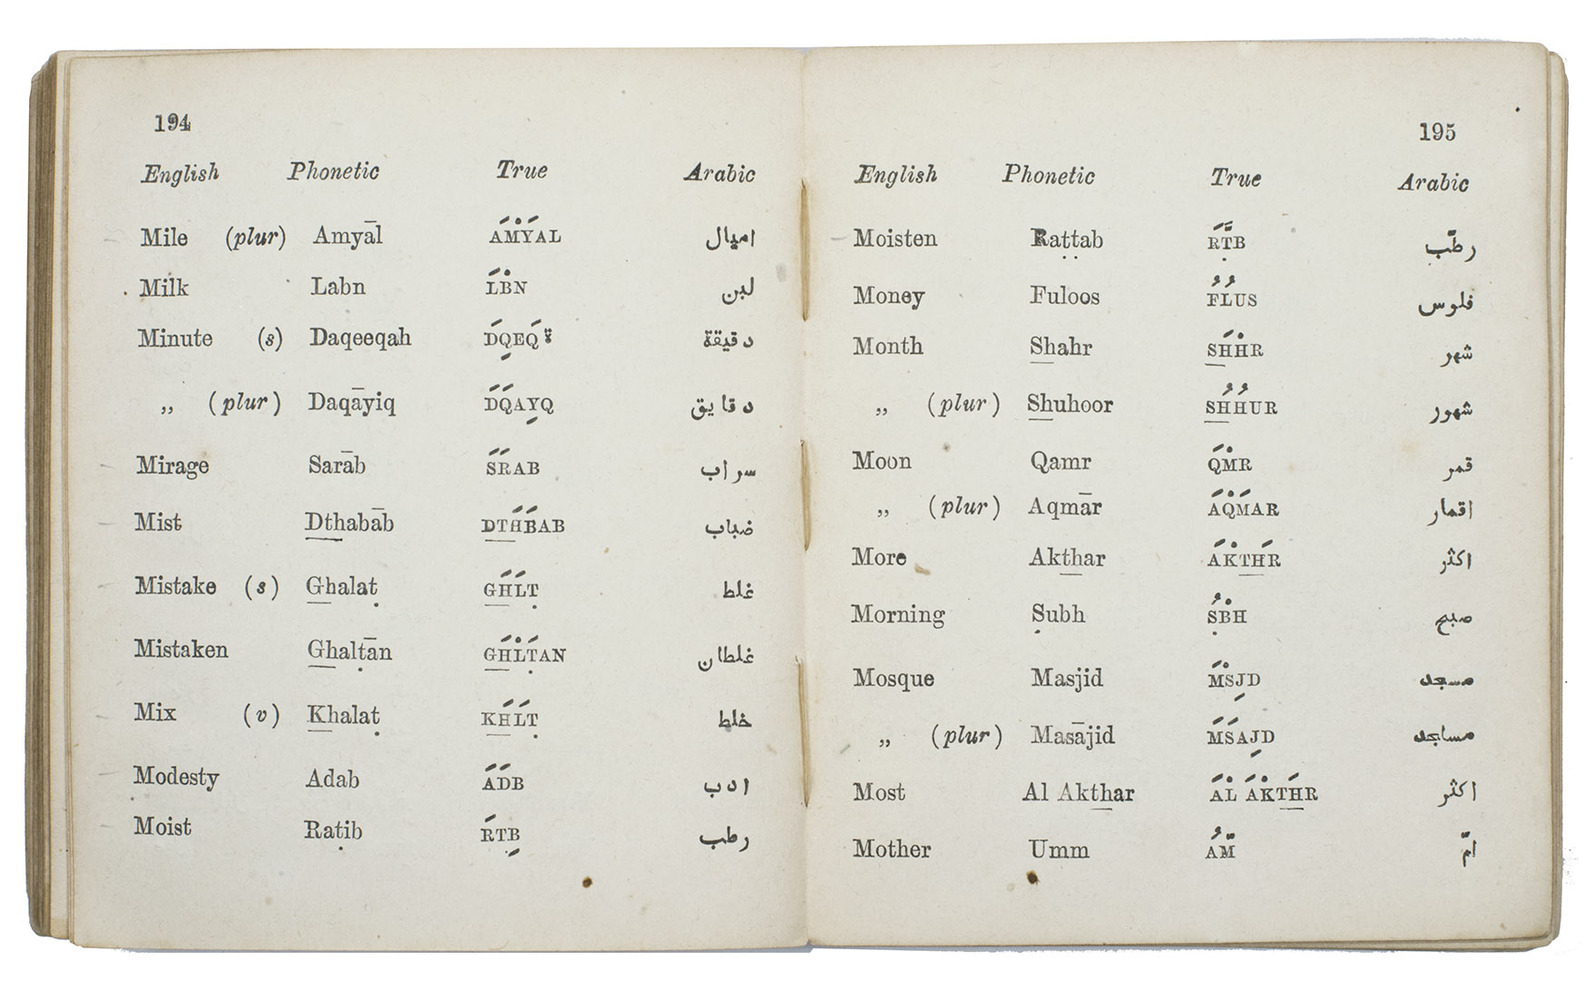 194
English Phonetic True Arabic
Mile (plur) Amyāl ÁM̊ÝAL اميال
Milk Labn ĹB̊N لبن
Minute (s) Daqeeqah D́QEQ́ ة دقيقة
„ (plur) Daqāyiq D́Q́AYQ دقايق
Mirage Sarāb ŚŔAB سراب
Mist Dthabāb DTH́B́AB ضباب
Mistake (s) Ghalaṭ GH́ĹṬ غلط
Mistaken Ghalṭān GH́L̊Ṭ́AN غلطان
Mix (v) Khalaṭ KH́ĹṬ خلط
Modesty Adab ÁD́B ادب
Moist Raṭib ŔṬB رطب
195
English Phonetic True Arabic
Moisten Raṭṭab ŔṬ́B رطّب
Money Fuloos F̓L̓US فلوس
Month Shahr SH́H̊R شهر
„ (plur) Shuhoor SH̓H̓UR شهور
Moon Qamr Q́M̊R قمر
„ (plur) Aqmār ÁQ̊ḾAR اقمار
More Akthar ÁK̊TH́R اكثر
Morning Ṣubh Ṣ̓B̊H صبح
Mosque Masjid ḾS̊JD مسجد
„ (plur) Masājid ḾŚAJD مساجد
Most Al Akthar ÁL̊ ÁK̊TH́R اكثر
Mother Umm A̓M̋ امّ